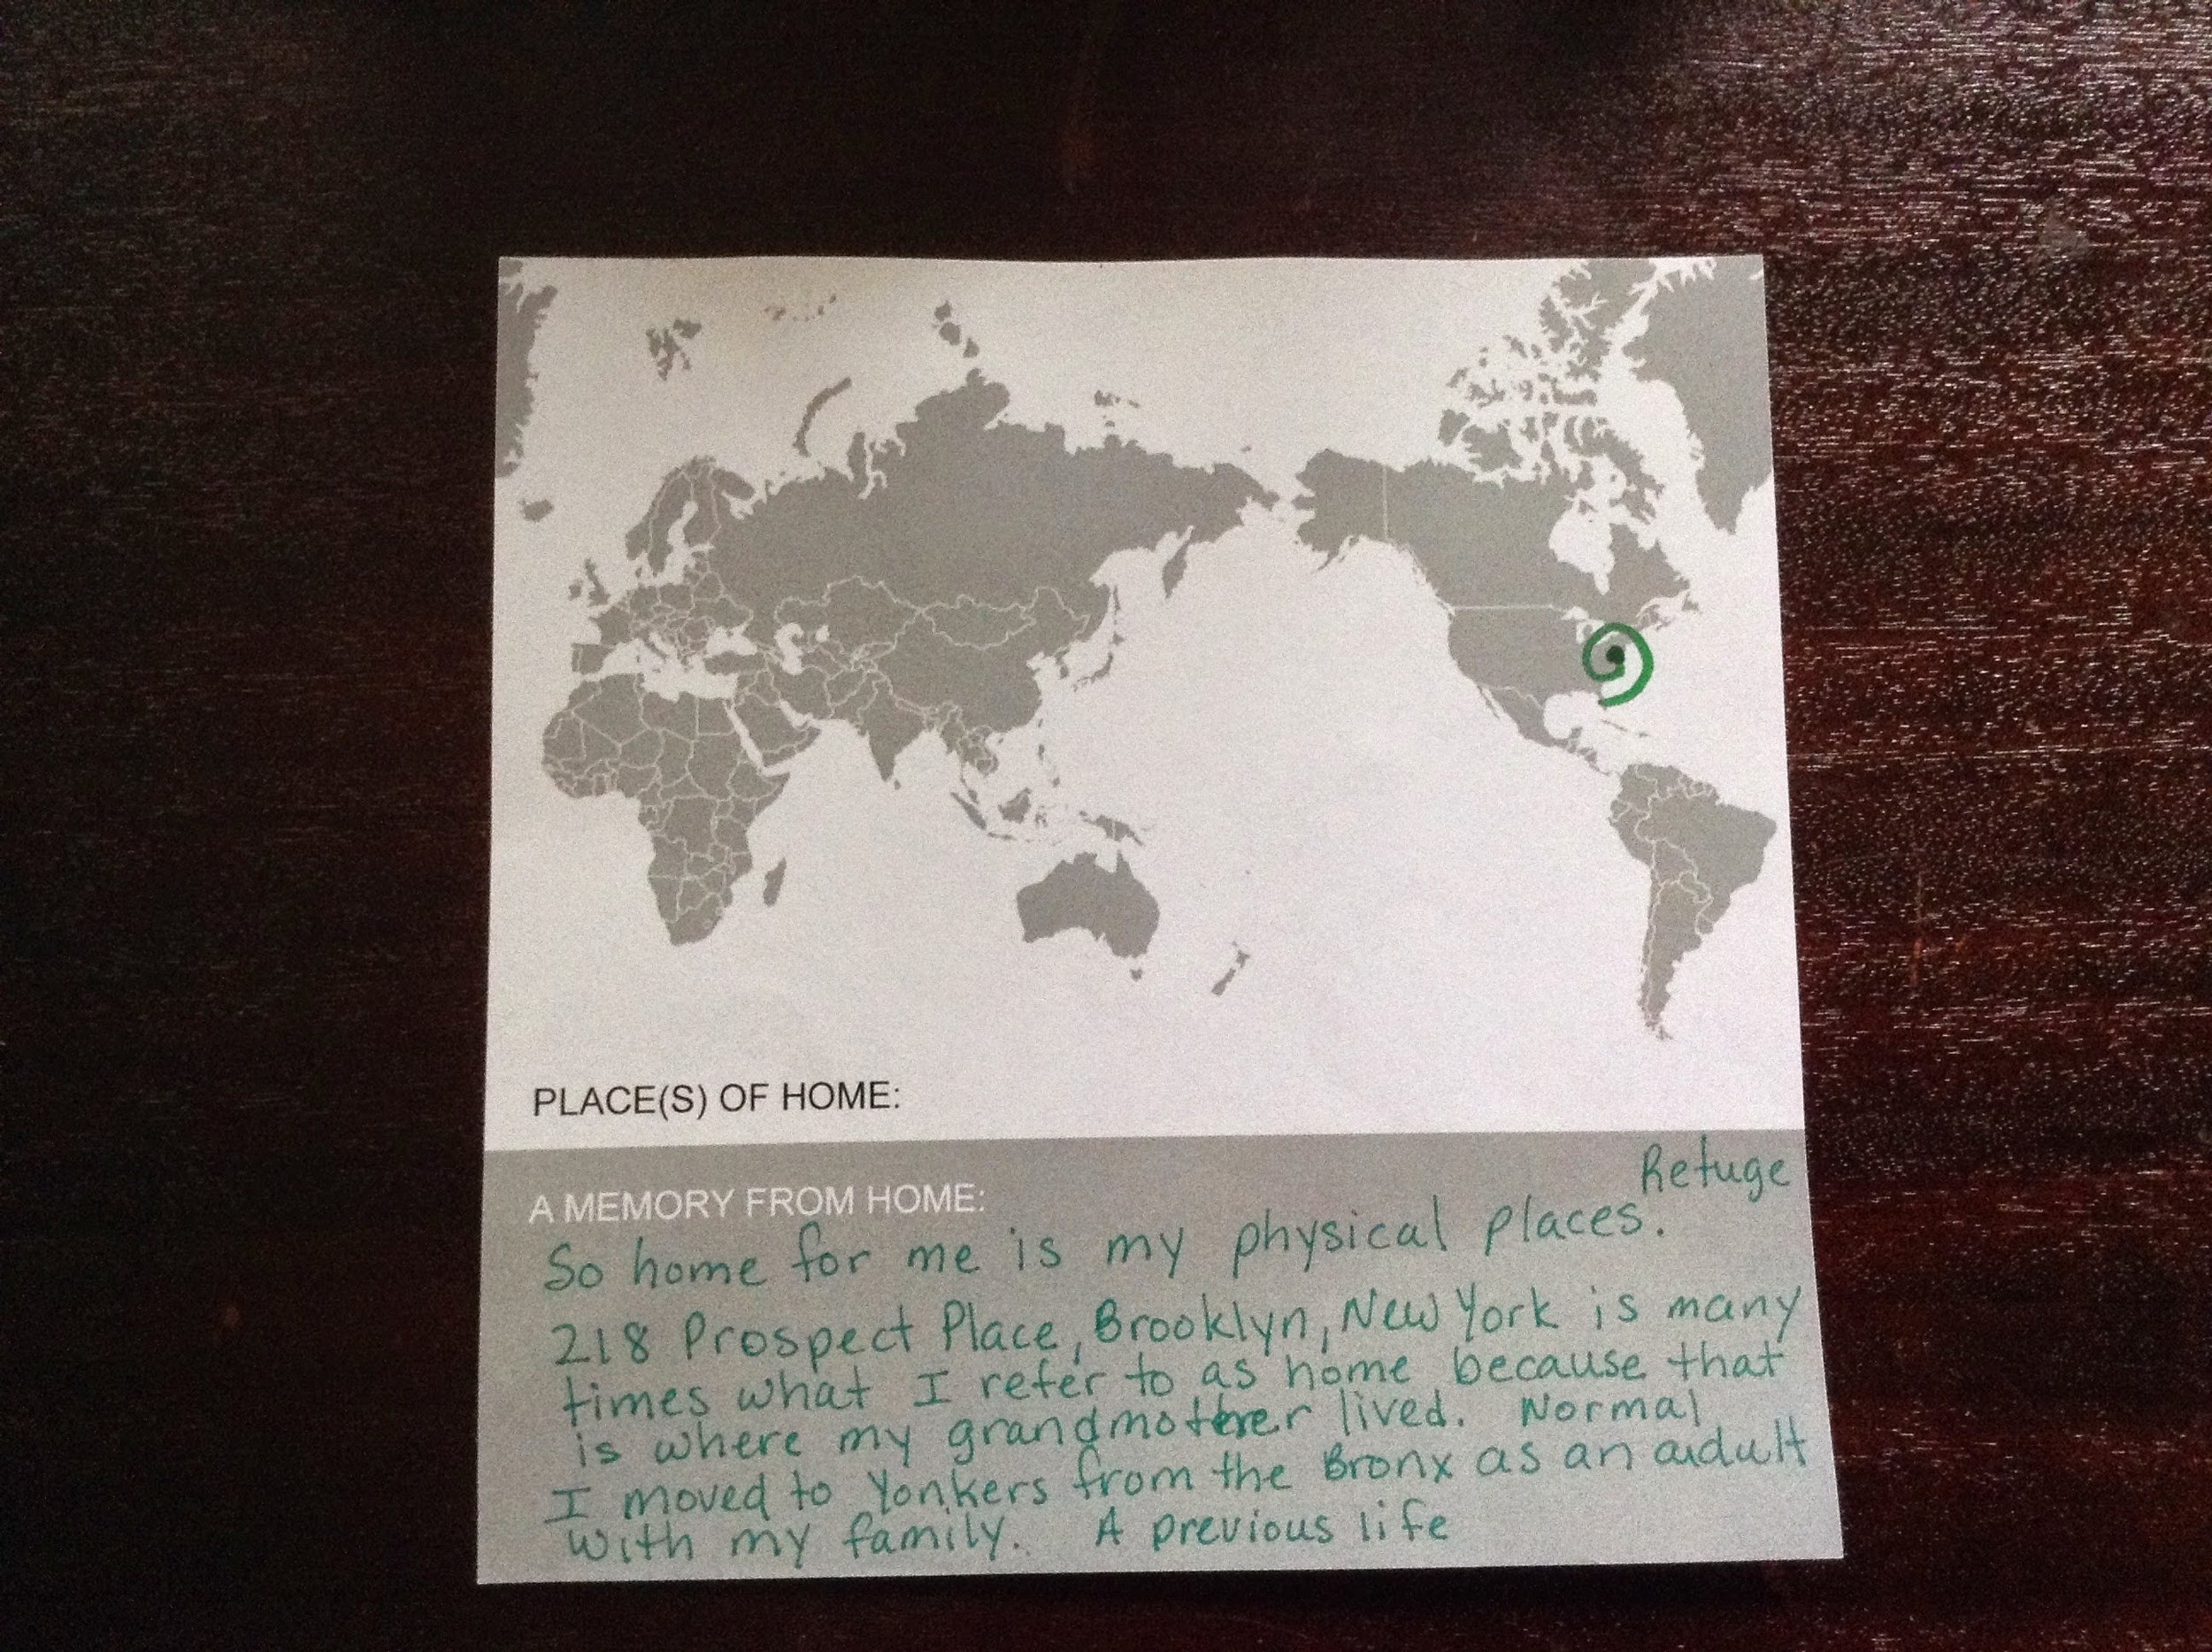 PLACE(S) OF HOME:
Refuge
A MEMORY FROM HOME:
So home for me is my physical places.
218 Prospect Place, Brooklyn, New York is many
times what I refer to as home because that
is where my grandmother lived. Normal
I moved to Yonkers from the Bronx as an adult
with my family. A previous life